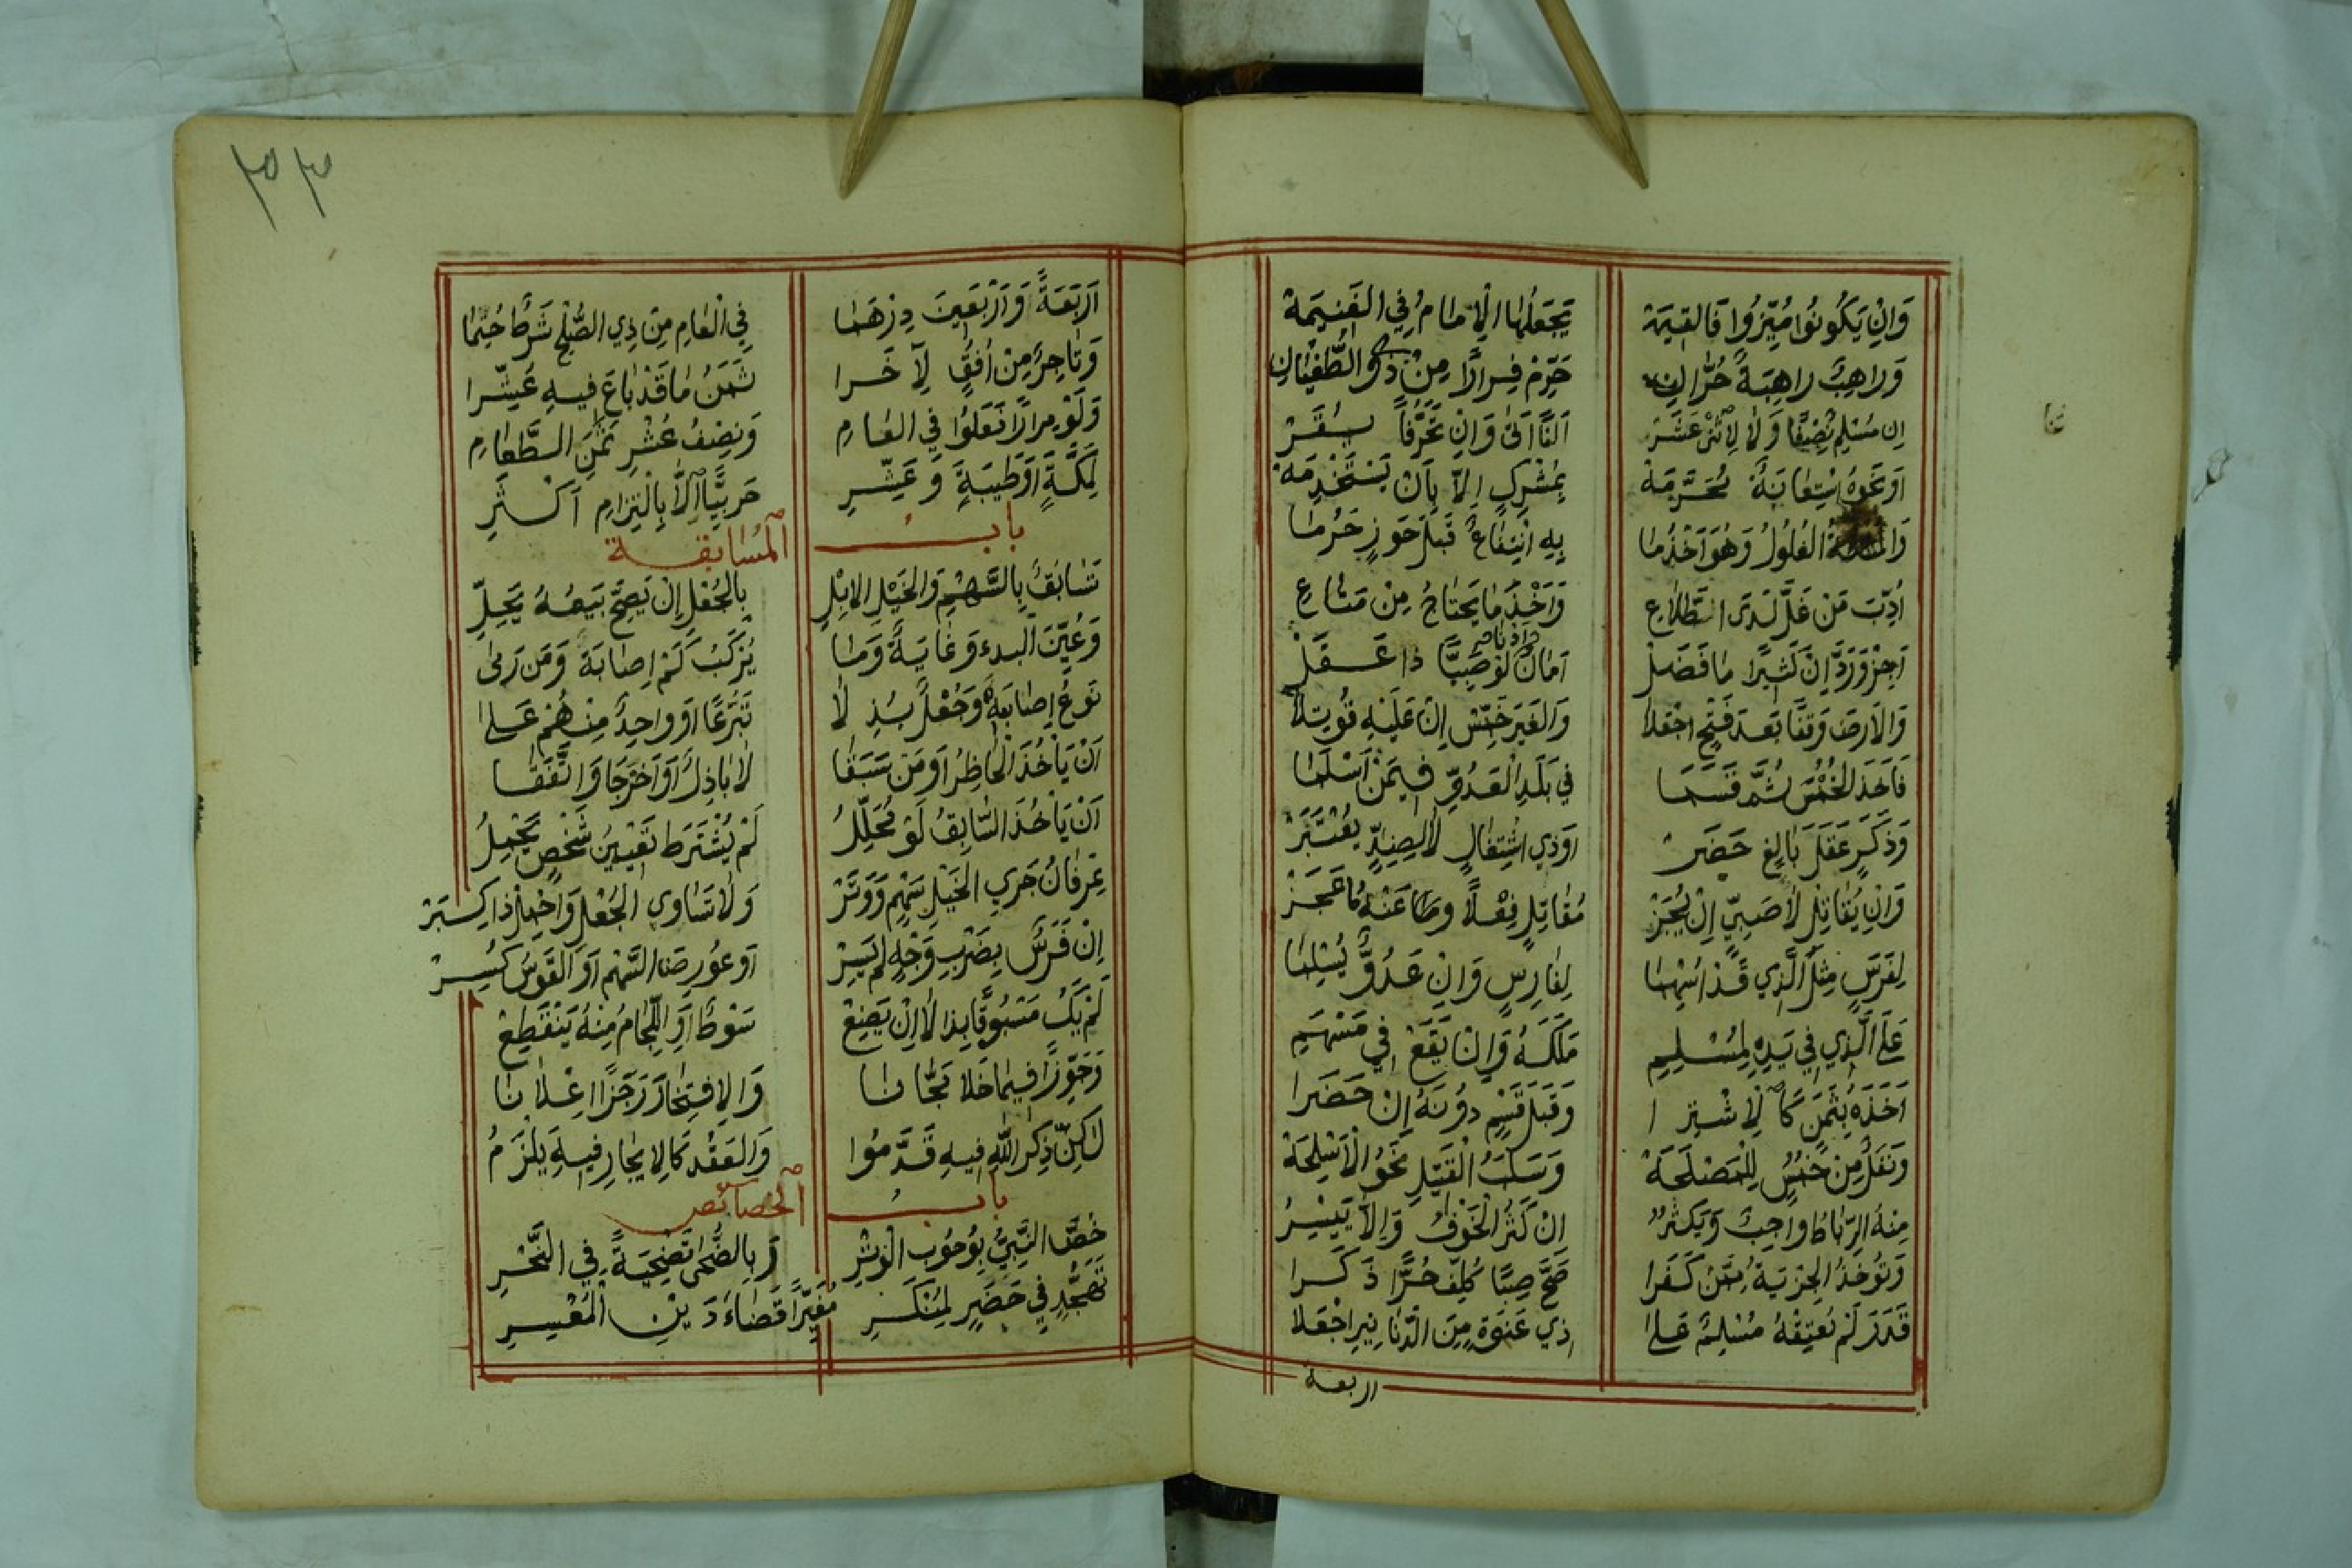 وَاِنْ يَكُونُوا مُيِّزُوا فَالقِيمَة يَجْعَلُهَا الْاِمَامُ فِي الغَنِيمَةْ
وَرَاهِبٌ رَاهِبَةٌ حُرَّانِ حَرِّمْ فِرَارًا مِنْ ذَوِي الطُّغْيَانِ
اِن مُسْلِم نِصْفًا وَلَا لِاثْنَيْ عَشَرْ
اَوْ نَحْوَهُ اسْتِعَانَةٌ مُحَرَّمَةْ بِمُشْرِكٍ اِلَّا بِاَنْ يَسْتَخْدِمَهْ
الغُلُولُ وَهْوَ اَخْذُ مَا بِهِ انْتِفَاعٌ قَبْلَ حَوْزٍ حَرُمَا
اُدِّبَ مَنْ غَلَّ لَدَى اسْتِطْلَاعِ وَاَخْذَ مَا يَحْتَاجُ مِنْ مَتَاعِ
اَجِزْ وَرَدَّ اِنْ كَثِيرًا مَا فَضَلْ اَمَانُ لَوْ صَبِيًّا ذَا عَقَلْ
وَالاَرضَ وَقفًا بَعدَ فَتْحٍ اجْعَلَا وَالغَيْرَ خَمِّسْ اِنْ عَلَيْهِ قُوتِلَا
فَاَخَذَ الخُمْسَ ثُمَّ قَسَمَا فِي بَلَدِ الْعَدُوِّ فِيمَنْ اَسْلَمَا
وَذَكَرٍ عَقَلَ بَالِغٍ حَضَرْ اَوْ ذِي اشْتِغَالٍ لَا لِصِدٍّ يُعْتَبَرْ
وَاِنْ يُقَاتِلْ لَا صَبِيٍّ اِنْ يُجَزْ مُقَاتِلٍ فِعْلًا وَمَا عَنْهُ عَجَزْ
لِفَرَسٍ مِثْلَا الَّذِي قَدْ اَسْهَمَا لِفَارِسٍ وَاِنْ عَدُوٌّ يُسْلِمَا
عَلَى الَّذِي فِي يَدِهِ لِمُسْلِمِ مَلَكَهُ وَاِنْ يَقَعْ فِي مَسْهَمِ
اَخَذَهُ بِثَمَنٍ كَالْاِشْتِرَا وَقَبْلَ قَسْمٍ دُونَهُ اِنْ حَضَرَا
وَنَفْلٌ مِنْ خُمُسٍ لِلْمَصْلَحَةْ وَسَلَبُ الْقَتِيلِ نَحْوُ الْاَسْلِحَةْ
مِنْهُ الرِّبَاطُ وَاجِبٌ وَيَكْثُرُ اِنْ كَثُرَ الْخَوْفُ وَاِلَّا يَيْسِرُ
وَتُؤْخَذُ الجِزْيَةُ مِمَّنْ كَفَرَا صَحَّ صِبًا كُلِّفَ حُرًّا ذَكَرَا
قَدَرَ لَمْ يُعْتِقْهُ مُسْلِمٌ عَلَى ذِي عَنْوَةٍ مِنَ الدَّنَانِيرِ اجْعَلَا
اربعة
٣٣
اَرْبَعَةً وَاَرْبَعِينَ دِرْهَمَا فِي الْعَامِ مِنْ ذِي الصُّلْحِ شَرْطًا حُتِّمَا
وَتَاجِرٌ مِنْ اُفُقٍ لِآخَرَا ثَمَنُ مَا قَدْ بَاعَ فِيهِ عَشِّرَا
وَلَوْ مِرَارًا فَعَلُوا فِي العَامِ وَنِصْفُ عُشْرِ ثَمَنِ الطَّعَامِ
لِمَكَّةٍ اَوْ طَيْبَةٍ وَعَشِّرِ حَرْبِيًّا اِلَّا بِالْتِزَامِ اَكْثَرِ
بَابُ المُسَابَقَة
تَسَابُقٌ بِالسَّهْمِ وَالخَيْلِ الاِبِلِ بِالجُعْلِ اِنْ يَصِحَّ بَيْعُهُ يَحِلِّ
وَعُيِّنَ البدءُ وَغَايَةٌ وَمَا يُرْكَبُ كَمْ اِصَابَةٌ وَمَن رَمَى
نَوْعُ اِصَابَةٍ وَجُعْلٌ بُذِلَا تَبَرُّعًا اَوْ وَاحِدٌ مِنْهُمْ عَلَى
اَنْ يَاْخُذَ الحَاضِرُ اَوْ مَنْ سَبَقَا لَا بَاذِلٌ اَوْ اَخْرَجَا وَاتَّفَقَا
اَنْ يَاْخُذَ السَّابِقُ لَوْ مُحَلِّلُ لَمْ يُشْتَرَط تَعْيِينُ شَخْصٍ يَجْمِلُ
عِرْفَانُ جَرْيِ الخَيْلِ سَهْمٍ وَوَتَرْ وَلَا تَسَاوِي الجُعْلِ وَاحْمِلْ ذَا كِبَرْ
اِنْ فَرَسٌ بِضَرْبِ وَجْهٍ لَمْ يَسِرْ اَوْ عُورِضَ السَّهْمُ اَوِ القَوْسُ كُسِرْ
لَمْ يَكُ مَسْبُوقًا بِذَا لَا اِنْ يَضِعْ سَوْطٌ اَوِ اللِّجَامُ مِنْهُ يَنْقَطِعْ
وَجَوِّزًا فِيمَا خَلَا مَجَّانَا وَالاِفْتِخَارَ رَجَزًا اِعْلَانَا
لَكِنَّ ذِكْرَ اللّٰهِ فِيهِ قَدَّمُوا وَالعَقْدُ كَالاِيجَارِ فِيهِ يَلْزَمُ
بَابُ الخَصَائِص
خُصَّ النَّبِيُّ بِوُجُوبِ الْوِتْرِ وَبِالضُّحَى تَضْحِيَةً فِي النَّحْرِ
تَهَجُّدٍ فِي حَضَرٍ لِمُنْكَرِ مُغَيِّرًا قَضَاءَ دَيْنِ الْمُعْسِرِ